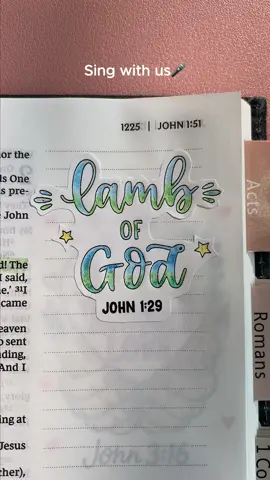 Sing with us🎤
1225 | JOHN 1:51
or the
ds One
s pre-
e John
lamb
OF
God
JOHN 1:29
d! The
I said,
e.' 31I
came
eaven
o sent
nding,
And I
ng at
Jesus
cher),
John 3:16
Acts
Romans
1 Co